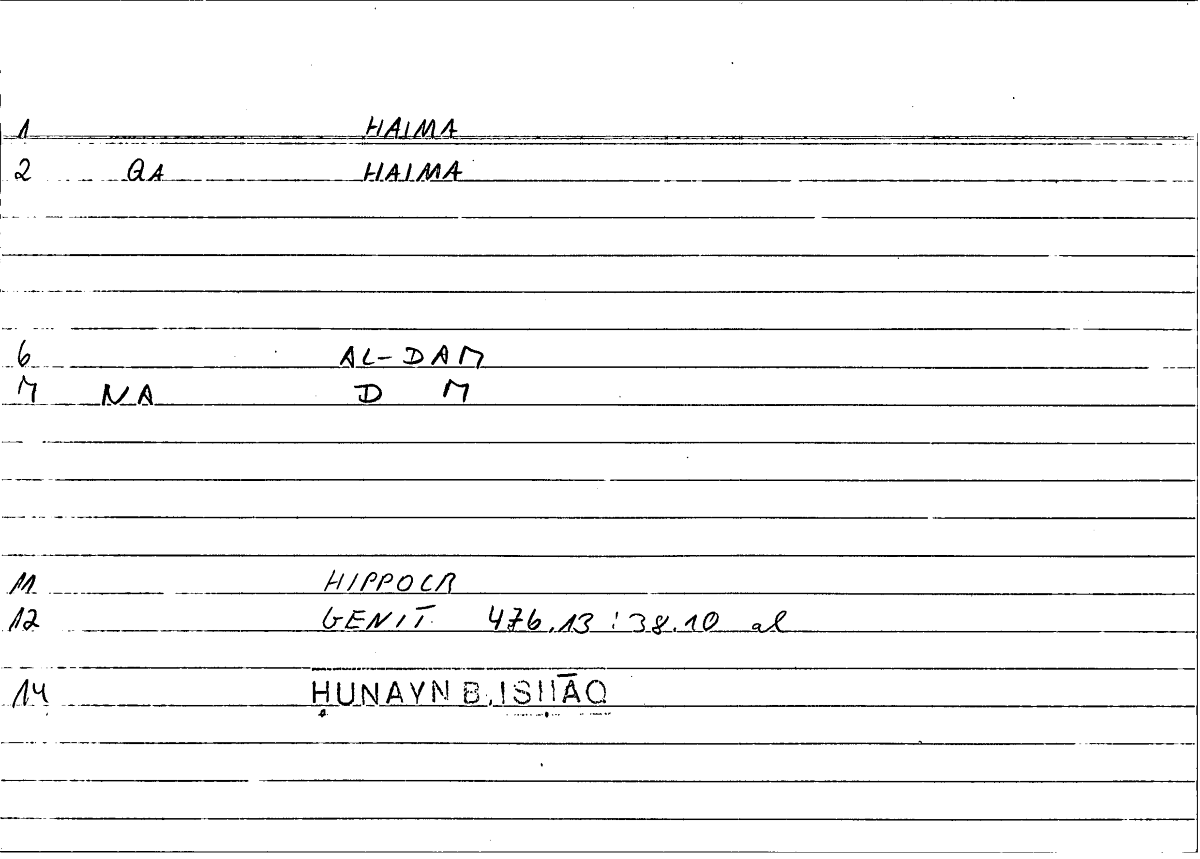 1 HAIMA
2 QA HAIMA
6 AL-DAM
7 NA D M
11 HIPPOCR
12 GENIT. 476.13 : 38.10 al
14 ḤUNAYN B. ISḤĀQ